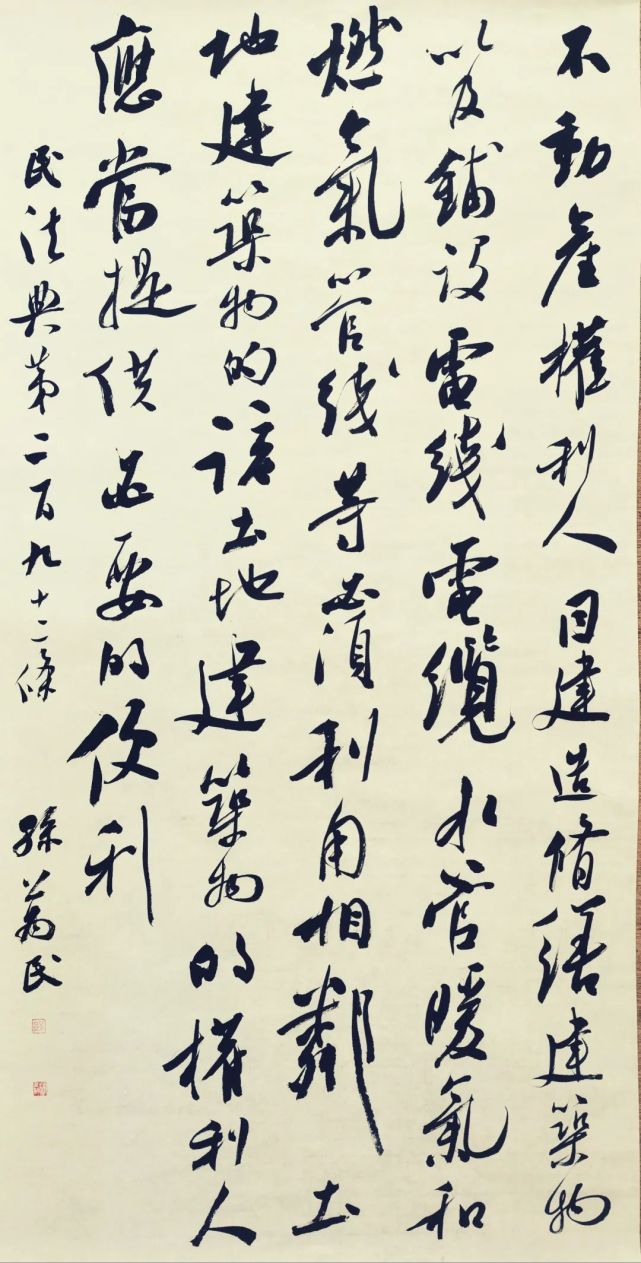 不動產權利人因建造脩繕建築物
以及鋪設電綫電纜水管暖氣和
燃氣管綫等必須利用相鄰土
地建築物的該土地建築物的權利人
應當提供必要的便利
民法典第二百九十二條
孫萬民